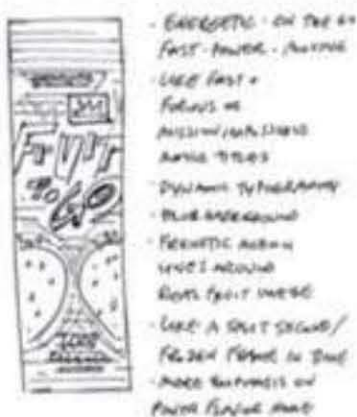 Fruit
to Go
- ENERGETIC - ON THE GO
FAST - POWER -
- LIKE FAST +
FURIOUS OR
MISSION IMPOSSIBLE
MOVIE TITLES
- DYNAMIC TYPOGRAPHY
- BLUR BACKGROUND
- FRENETIC ACTION
LINES AROUND
FRUIT IMAGE
- LIKE A SPLIT SECOND/
FROZEN FRAME IN TIME
- MORE EMPHASIS ON
FLAVOR NAME